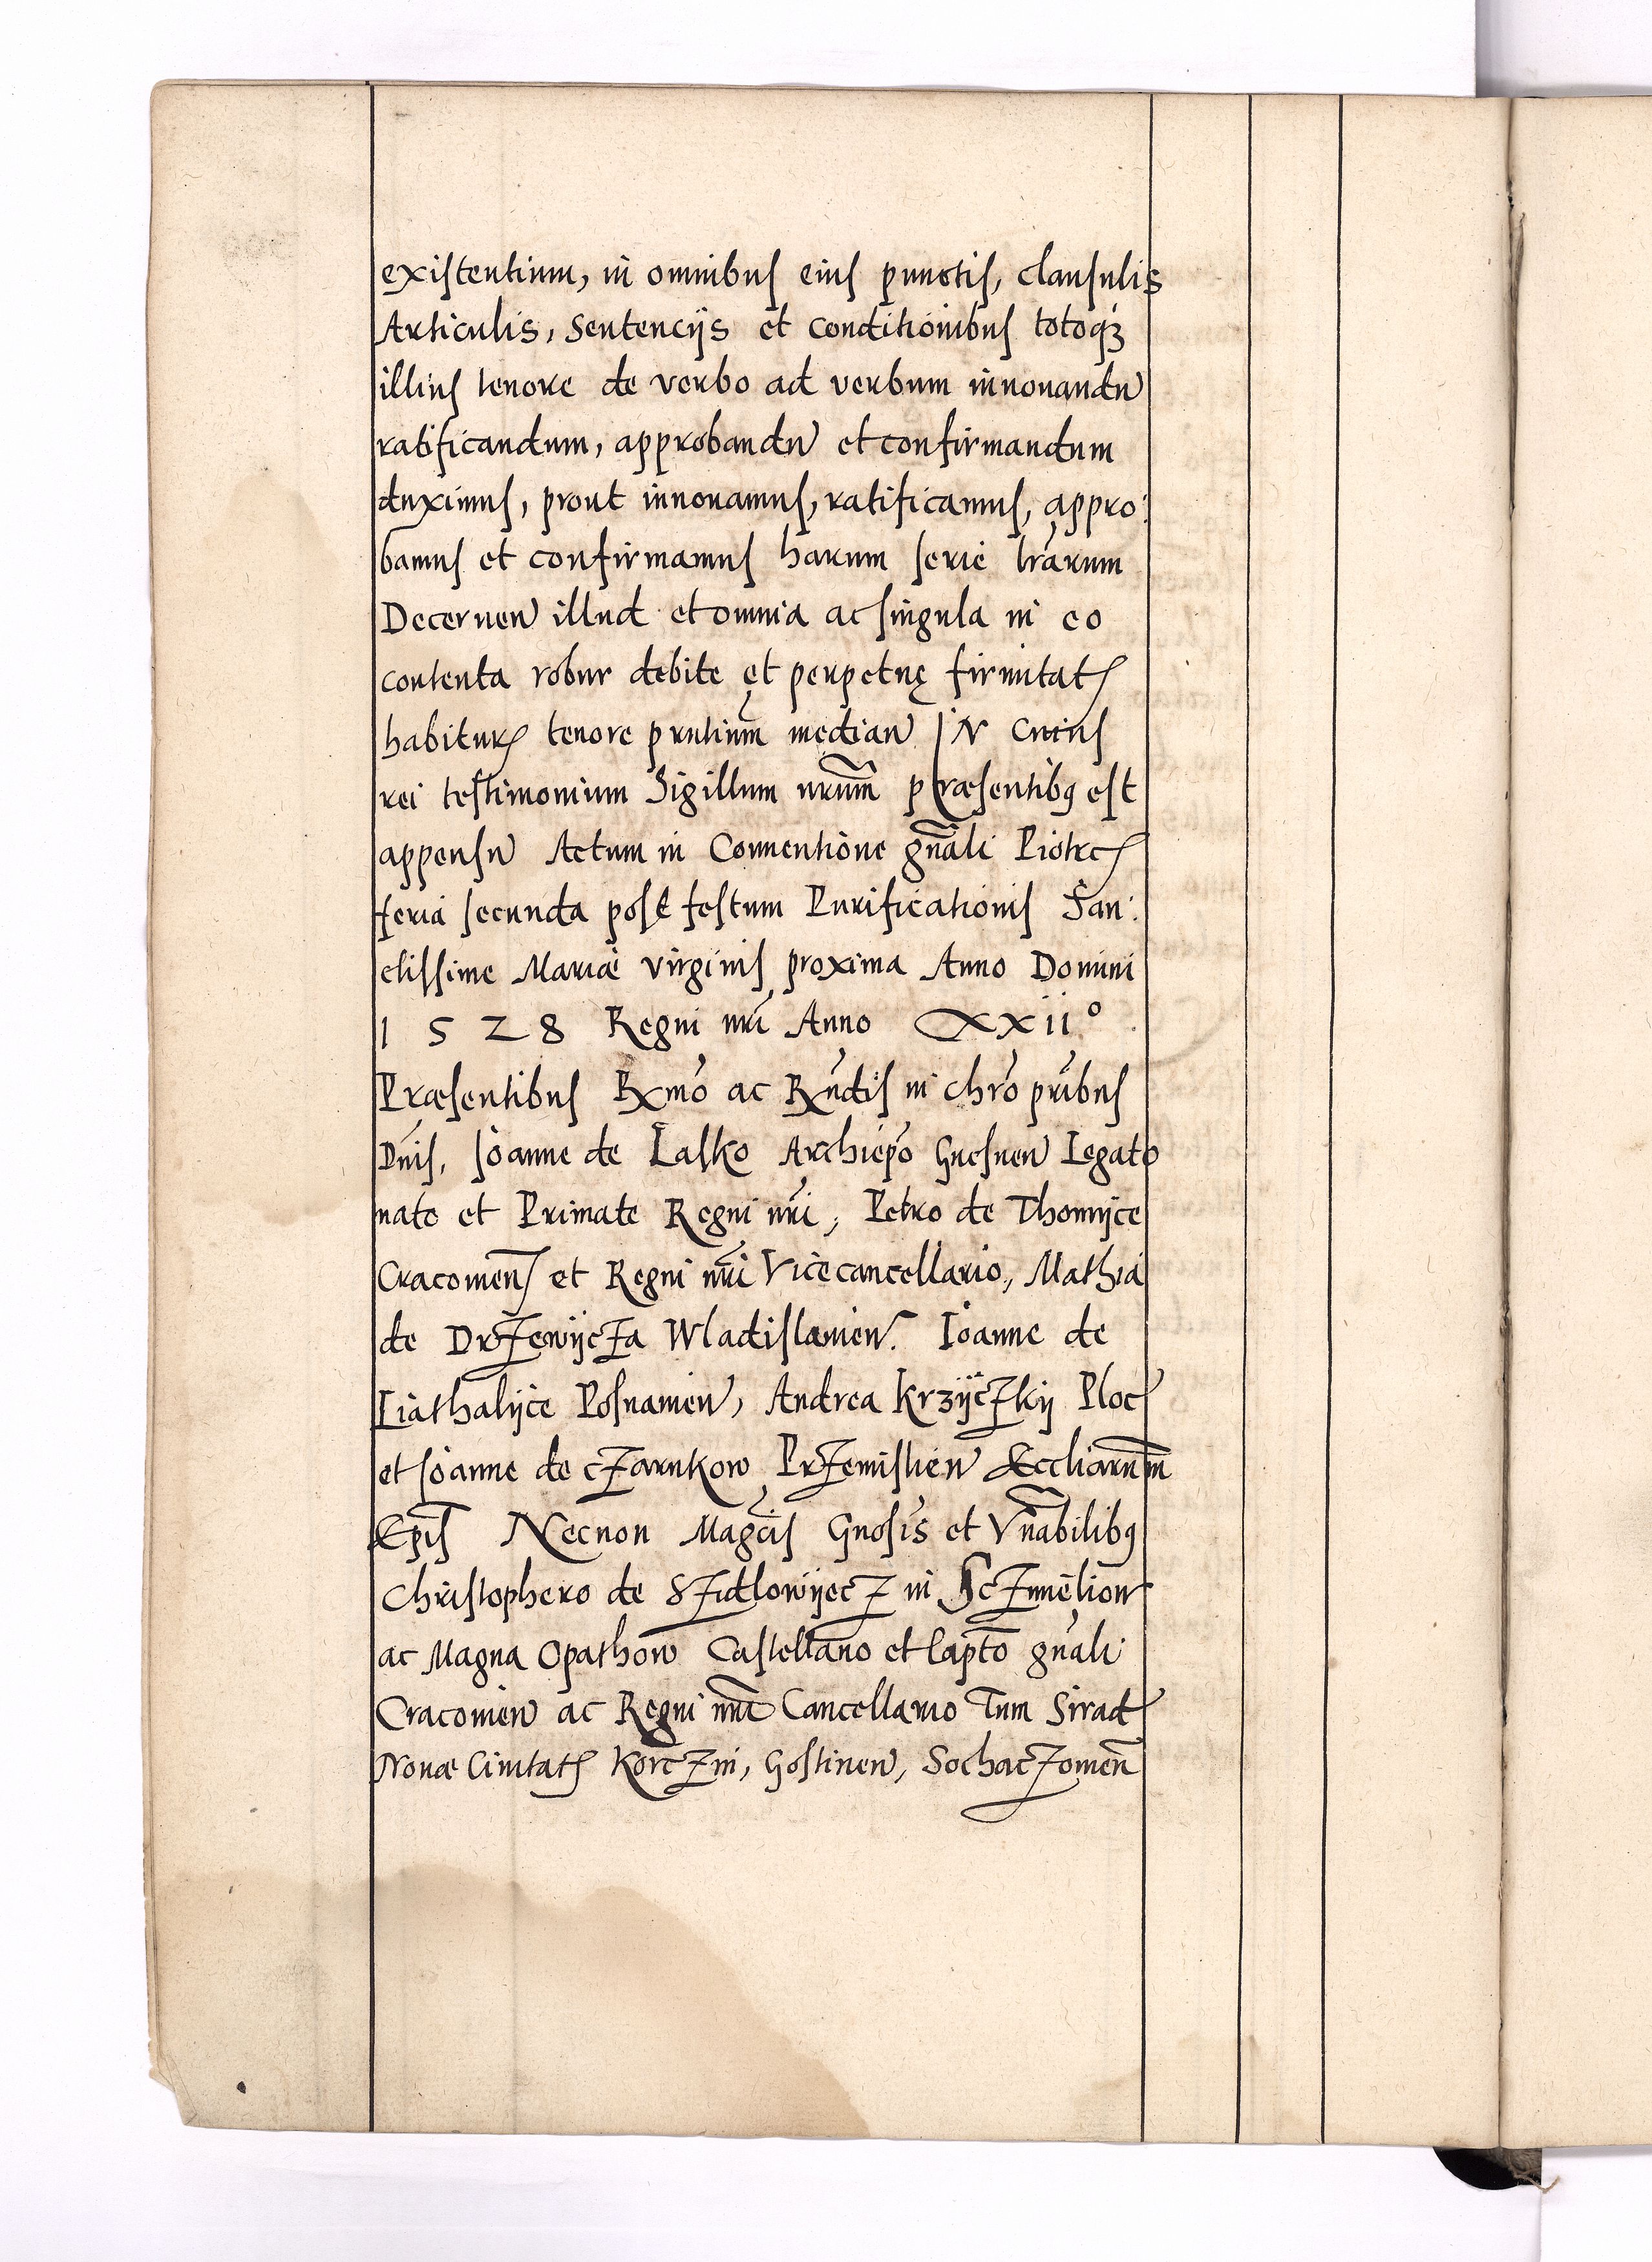 existentium, in omnibus eius punctis, clausulis
Articulis, Sentencijs et conditionibus totoqꝫ
illius tenore de verbo ad verbum innouandũ
ratificandum, approbandũ et confirmandum
duximus, prout innouamus, ratificamus, appro:
bamus et confirmamus harum serie lrãrum
Decernen̄ illud et omnia ac singula in eo
contenta robur debite et perpetuę firmitatꝭ
habiturꝭ tenore prntium̄ median̄ IN Cuius
rei testimonium Sigillum nrum̄ præsentibꝰ est
appensũ Actum in Conuentione gn̄ali Piotrcꝭ
feria secunda post festum Purificationis San:
ctissime Mariæ virginis proxima Anno Domini
1528 Regni nrĩ Anno XXii°
Præsentibus Rxmo ac Rxndis in chrõ prĩbus
Dnĩs, Ioanne de Lasko Archiepõ Gnesnen̄ Legato
nato et Primate Regni nrĩ, Petro de Thomijce
Cracouien̄ et Regni nrĩ Vicecancellario, Mathia
de Drzewijcza Wladislauien̄. Ioanne de
Liathalijce Posnanien̄, Andrea Krzijczkij Ploc̄
et Ioanne de Czarnkow Przemislien̄ Eccliarum̄
Epĩs Necnon Magcĩs Gnosis et Vn̄abilibꝰ
Christophero de Szidlowijecz in Sczmieliow
ac Magna Opathow Castellano et Captõ gn̄ali
Cracouien̄ ac Regni nrĩ Cancellario Tum Sirad̄
Nouæ Ciuitatꝭ Korczin, Gostinen̄, Sochaczouien̄